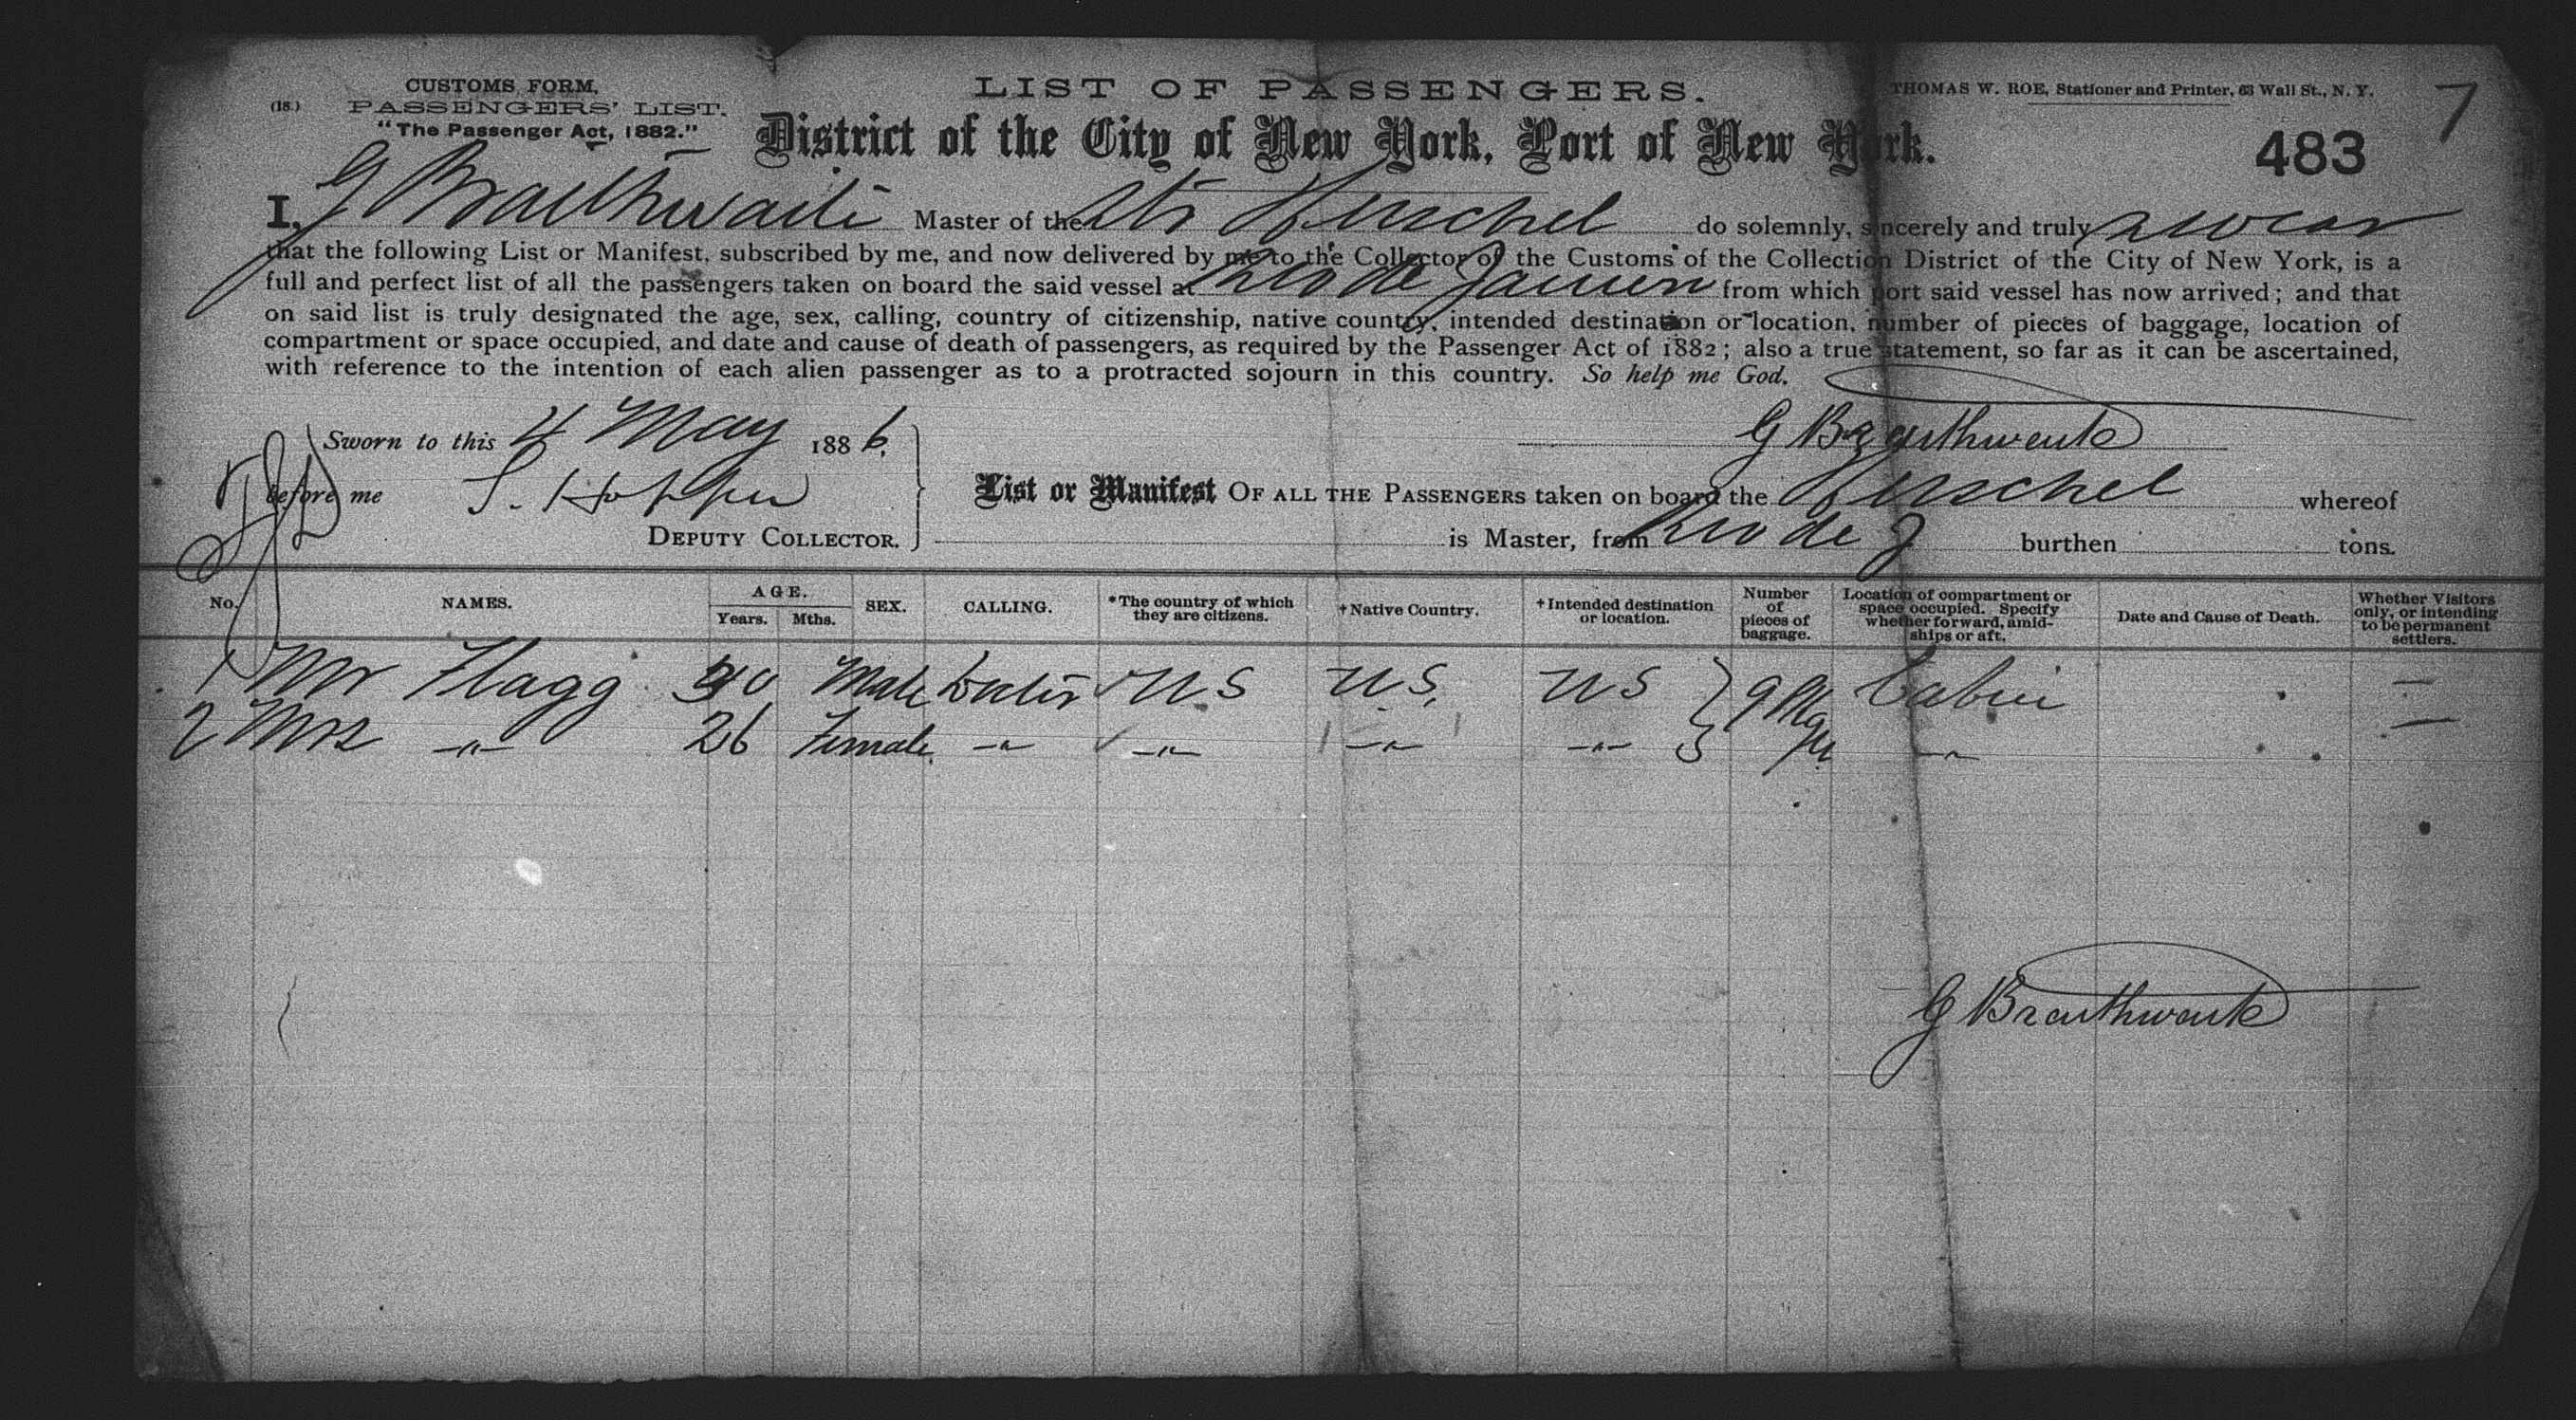 CUSTOMS FORM,
(18.) PASSENGERS' LIST.
"The Passenger Act, 1882."
LIST OF PASSENGERS.
THOMAS W. ROE, Stationer and Printer, 63 Wall St., N. Y.
7
District of the City of New York, Port of New York.
483
I, G Braithwaite Master of the Str Herschel do solemnly, sincerely and truly swear
that the following List or Manifest, subscribed by me, and now delivered by me to the Collector of the Customs of the Collection District of the City of New York, is a
full and perfect list of all the passengers taken on board the said vessel at Rio de Janiero from which port said vessel has now arrived; and that
on said list is truly designated the age, sex, calling, country of citizenship, native country, intended destination or location, number of pieces of baggage, location of
compartment or space occupied, and date and cause of death of passengers, as required by the Passenger Act of 1882; also a true statement, so far as it can be ascertained,
with reference to the intention of each alien passenger as to a protracted sojourn in this country. So help me God.
Sworn to this 4 May 1886, G Braithwaite
before me
DEPUTY COLLECTOR.
List or Manifest OF ALL THE PASSENGERS taken on board the Herschel whereof
is Master, from Rio de J burthen tons.
No. NAMES. AGE. Years. Mths. SEX. CALLING. *The country of which they are citizens. †Native Country. †Intended destination or location. Number of pieces of baggage. Location of compartment or space occupied. Specify whether forward, amidships or aft. Date and Cause of Death. Whether Visitors only, or intending to be permanent settlers.
1 Mr Flagg Male Doctor U S U S, U S 9 Pkgs Cabin —
2 Mrs —"— 26 Female —"— —"— —"— —"— —"— —
G Braithwaite